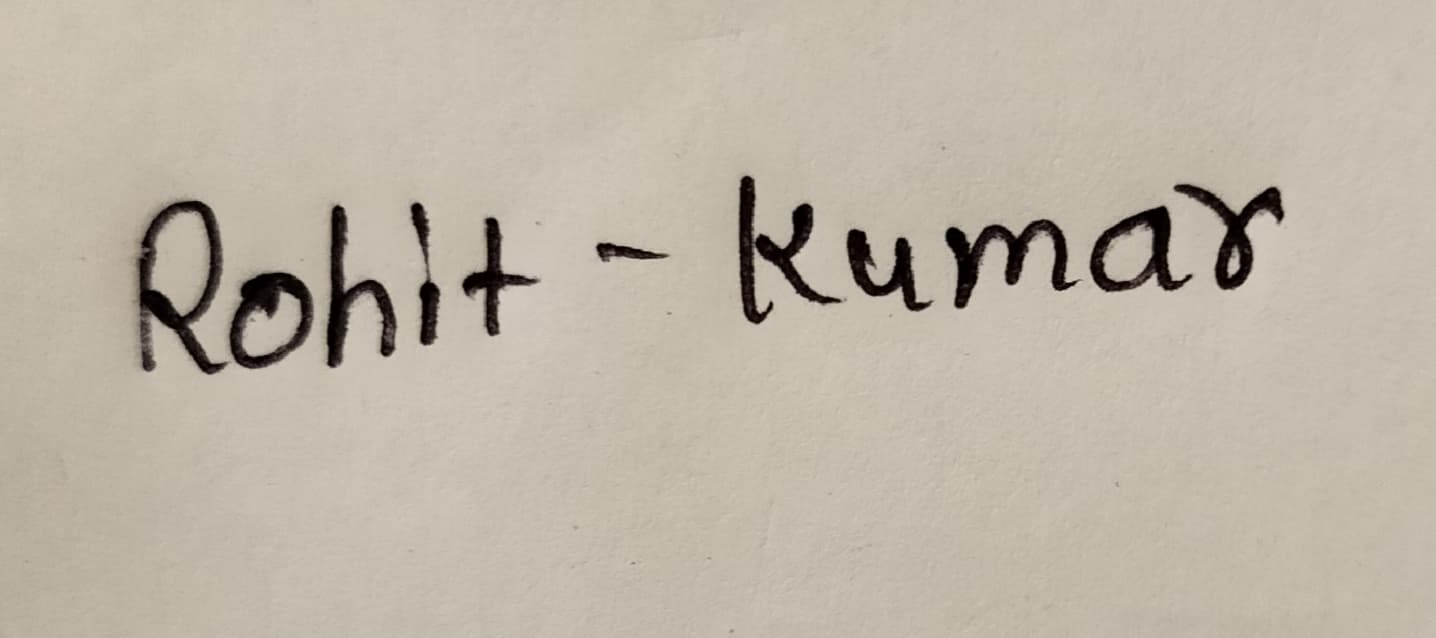 Rohit - Kumar